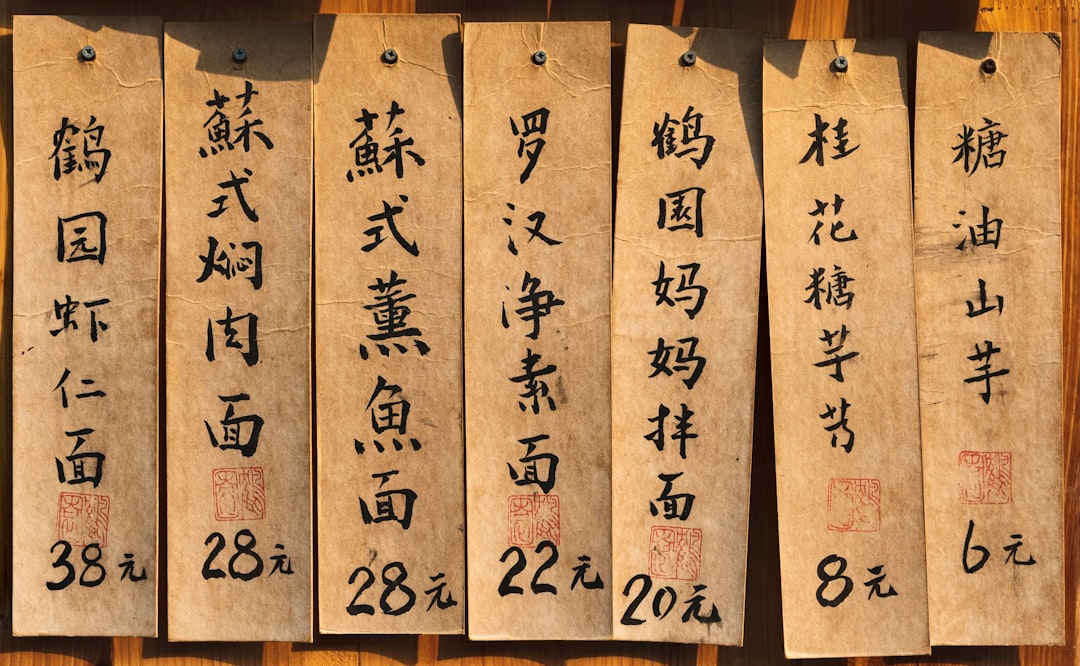 鹤园虾仁面
38元
蘇式焖肉面
28元
蘇式薰魚面
28元
罗汉净素面
22元
鹤園妈妈拌面
20元
桂花糖芋艿
8元
糖油山芋
6元